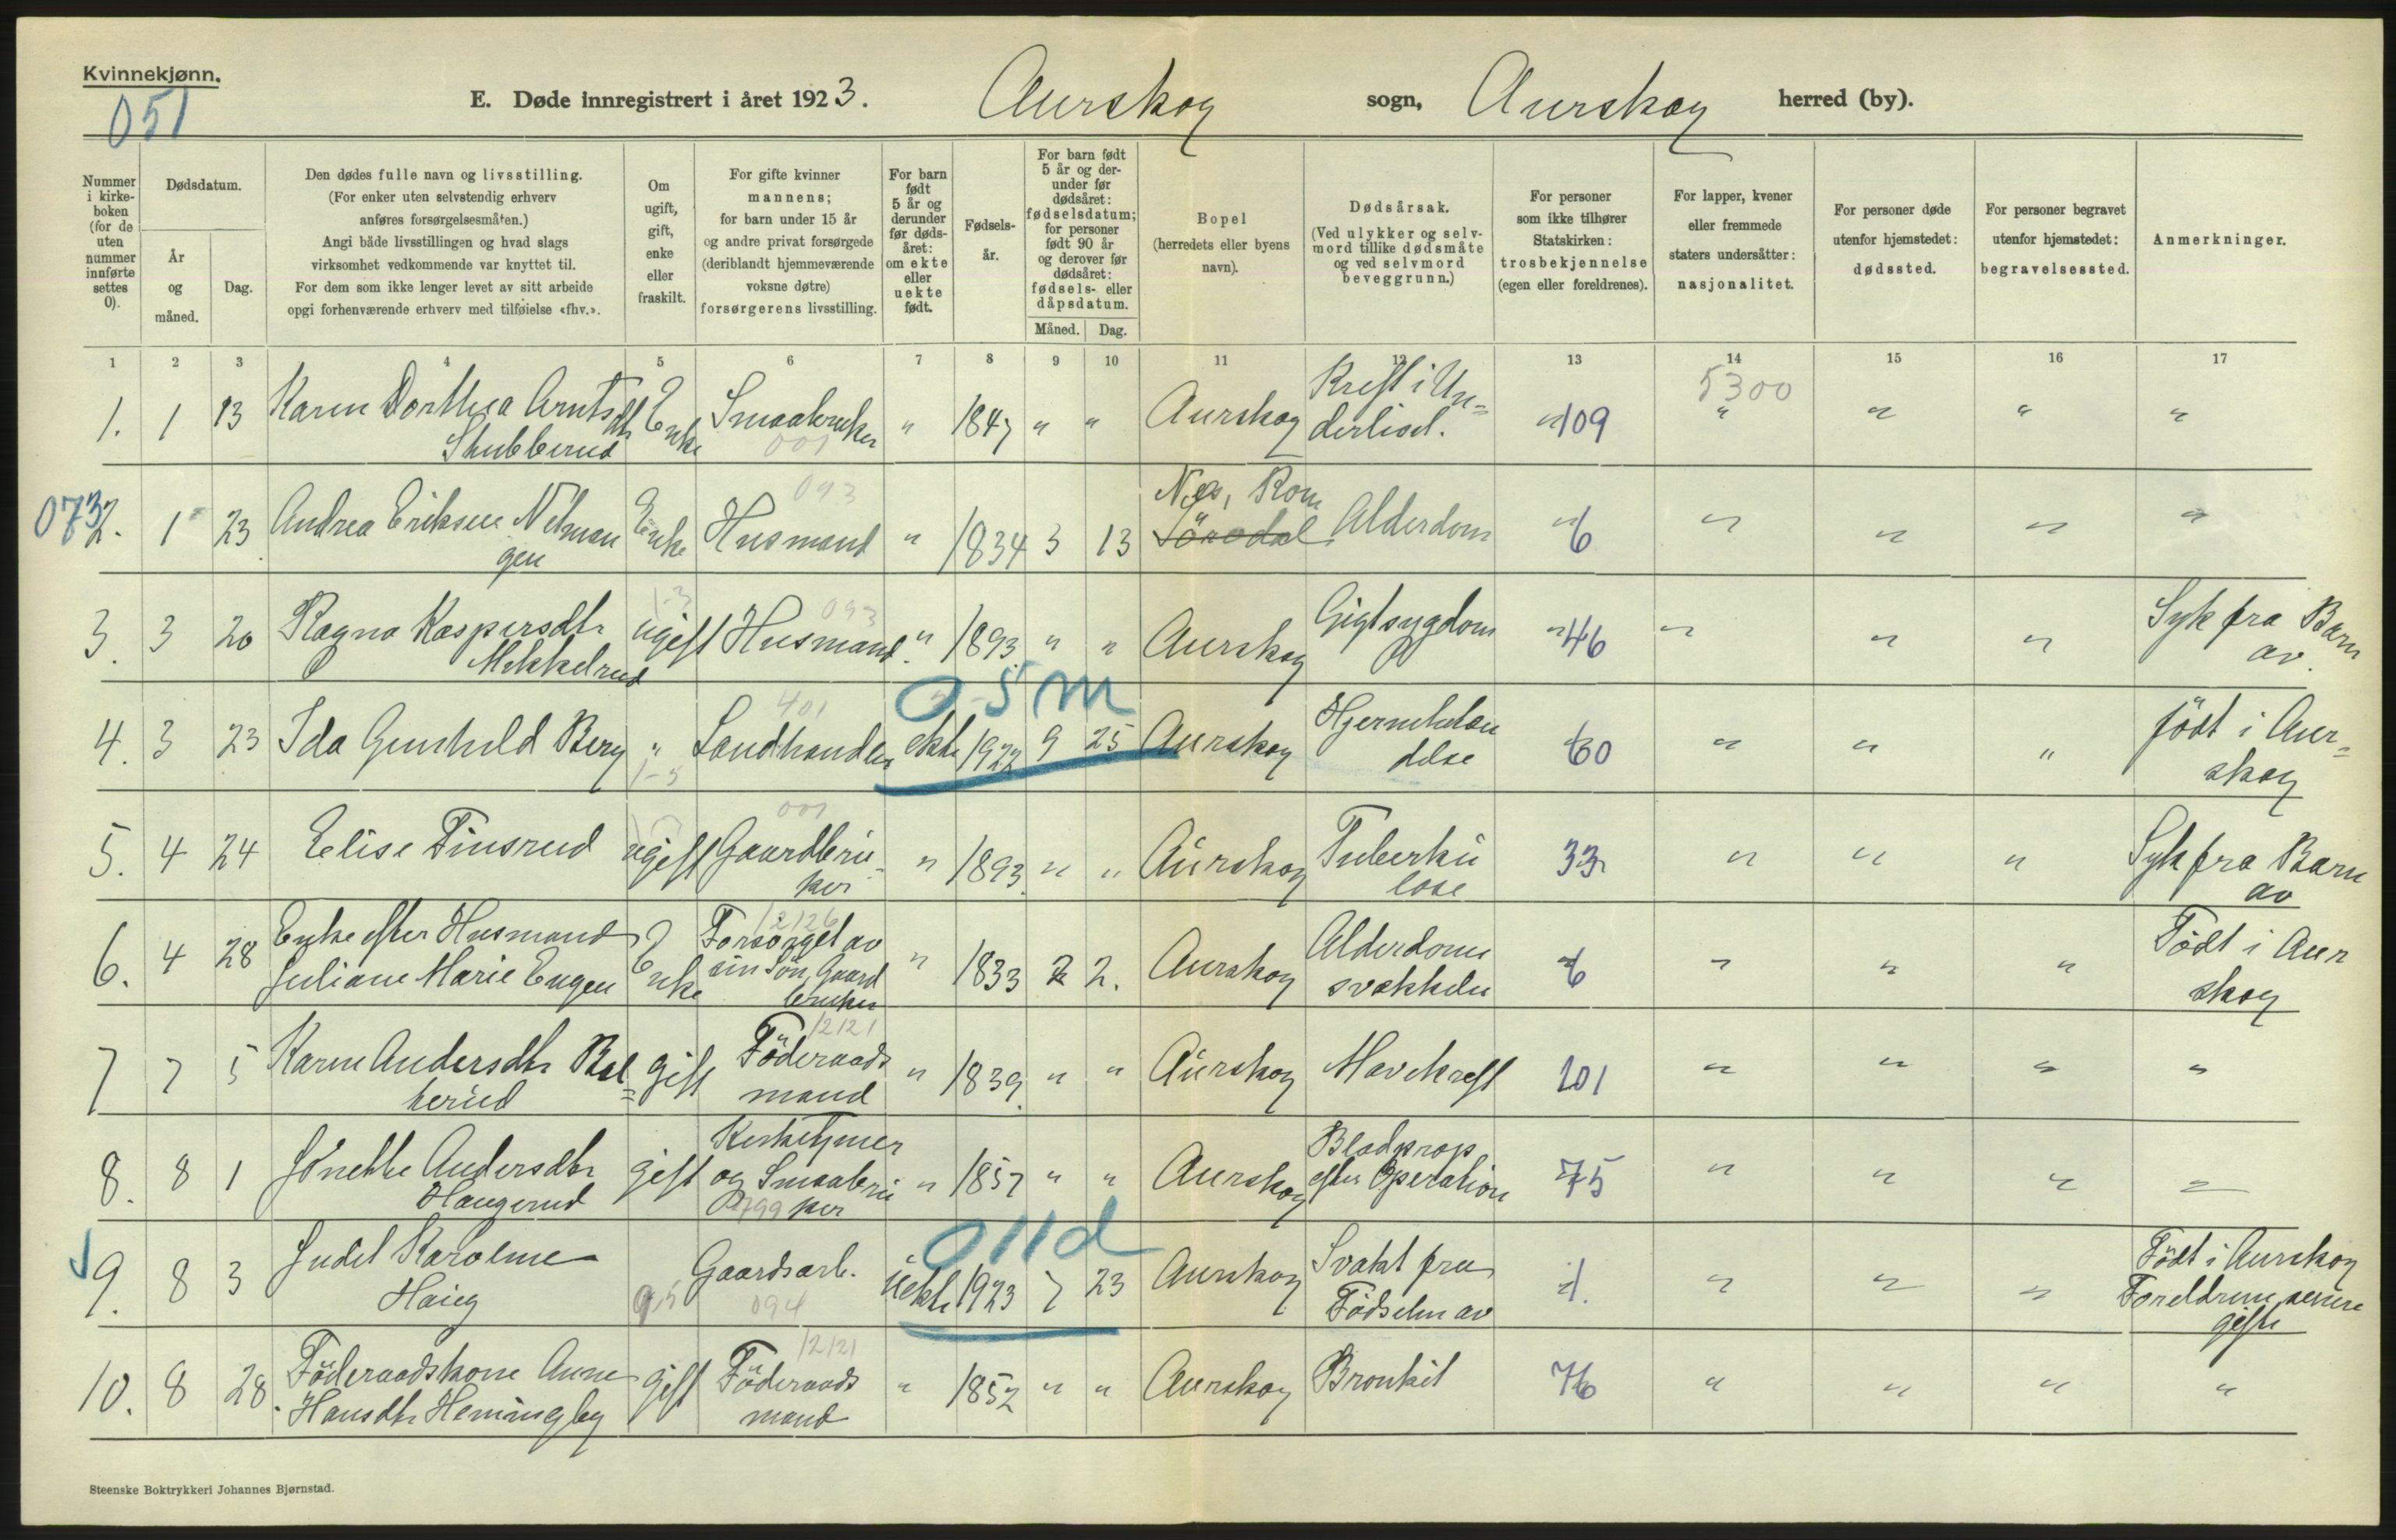 Kvinnekjønn.
051
E. Døde innregistrert i året 1923. Aurskog sogn, Aurskog herred (by).
Nummer i kirke-boken (for de uten nummer innførte settes 0).
Dødsdatum.
År og måned.
Dag.
Den dødes fulle navn og livsstilling.
(For enker uten selvstendig erhverv
anføres forsørgelsesmåten.)
Angi både livsstillingen og hvad slags
virksomhet vedkommende var knyttet til.
For dem som ikke lenger levet av sitt arbeide
opgi forhenværende erhverv med tilføielse «fhv.».
Om ugift, gift, enke eller fraskilt.
For gifte kvinner
mannens;
for barn under 15 år
og andre privat forsørgede
(deriblandt hjemmeværende
voksne døtre)
forsørgerens livsstilling.
For barn født 5 år og derunder før døds-året: om ekte eller uekte født.
Fødsels-år.
For barn født 5 år og der-under før dødsåret: fødselsdatum; for personer født 90 år og derover før dødsåret: fødsels- eller dåpsdatum.
Måned. Dag.
Bopel
(herredets eller byens
navn).
Dødsårsak.
(Ved ulykker og selv-
mord tillike dødsmåte
og ved selvmord
beveggrunn.)
For personer
som ikke tilhører
Statskirken:
trosbekjennelse
(egen eller foreldrenes).
For lapper, kvener
eller fremmede
staters undersåtter:
nasjonalitet.
For personer døde
utenfor hjemstedet:
dødssted.
For personer begravet
utenfor hjemstedet:
begravelsessted.
Anmerkninger.
1 2 3 4 5 6 7 8 9 10 11 12 13 14 15 16 17
5300
1. 1 13 Karen Dorthea Arntsdtr Enke Smaabruker " 1847 " " Aurskog Kreft i Un=
Skubberud 001 derlivet. " 109 " " " "
093 Nes, Rom
073 2. 1 23 Andrea Eriksen Nilman Enke Husmand " 1834 3 13 Alderdom " 6 " " " "
gen
093
3. 3 20 Ragna Kaspersdtr ugift Husmand. " 1893. " " Aurskog Gigtsygdom " 46 " " " Syk fra Barn
Mikkelrud av.
05m
401
4. 3 23 Ida Gunhild Berg " Landhandler ekte 1922 9 25 Aurskog 60 " " " født i Aur=
1-5 skog
001
5. 4 24 Elise Finsrud ugift Gaardbru= " 1893. " " Aurskog Tuberku 33 " " " Syk fra Barn
ker lose av
12126
6. 4 28 Enke efter Husmand Enke Forsørget av " 1833 2 2. Aurskog Alderdoms 6 " " " Født i Aur
Juliane Marie Engen sin Søn, Gaard svækkelse skog
bruker
12121
7 7 5 Karen Andersdtr Bal= gift Føderaads " 1839. " " Aurskog Mavekreft 101 " " " "
kerud mand
8. 8 1 Jønette Andersdtr gift Kirketjener " 1857 " " Aurskog Blodprop 75 " " " "
Haugerud og Smaabru efter Operation
799 ker
011d
9. 8 3 Judit Karoline Gaardsarb. uekte 1923 7 23 Aurskog Svakt fra 1. " " " Født i Aurskog
Haug 094 Fødselen av Foreldrene senere
gifte
12121
10. 8 28. Føderaadskone Anne gift Føderaads " 1852 " " Aurskog Bronkit 76 " " " "
Hansdtr Hemingby mand
Steenske Boktrykkeri Johannes Bjørnstad.